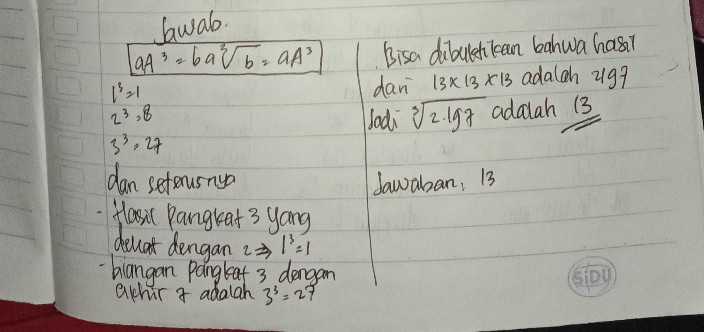 Jawab.
aA³ = ba ∛b = aA³
1³=1
2³, 8
3³, 27
dan seterusnya
- Hasil Pangkat 3 yang
dekat dengan 2 ⇒ 1³=1
- bilangan Pangkat 3 dengan
akhir 7 adalah 3³ = 27
Bisa dibuktikan bahwa hasil
dari 13 x 13 x 13 adalah 2197
Jadi ∛2.197 adalah 13
Jawaban, 13
SiDU